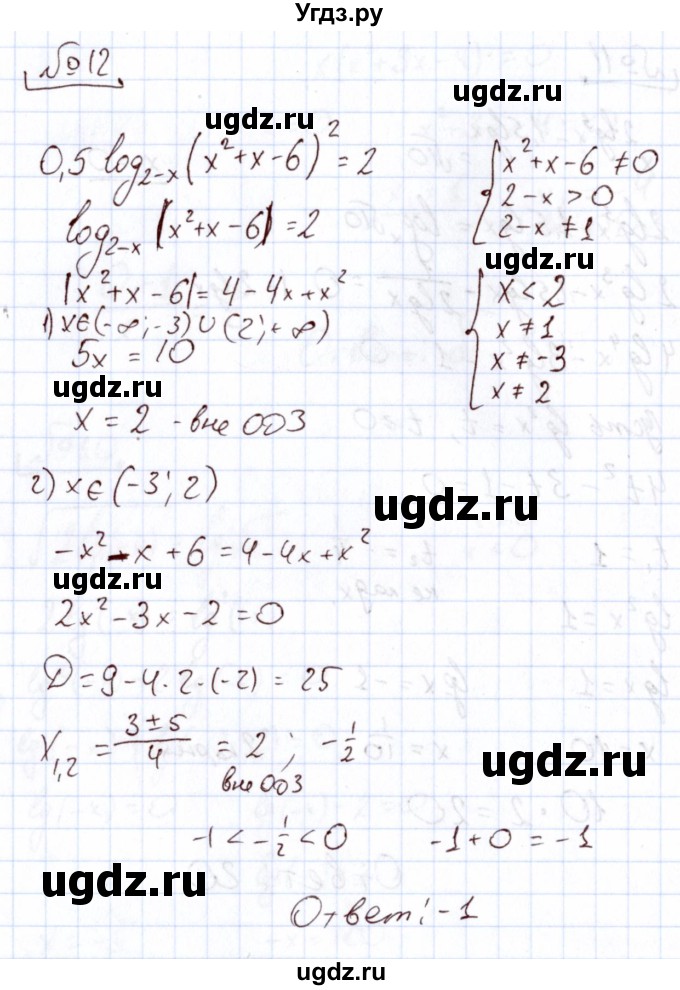 Угдз.ру
№12
ugdz.ru
0,5 log₂₋ₓ(x²+x-6)² = 2
x²+x-6 ≠ 0
2-x > 0
2-x ≠ 1
log₂₋ₓ|x²+x-6| = 2
ugdz.ru
ugdz.ru
|x²+x-6| = 4-4x+x²
x < 2
x ≠ 1
x ≠ -3
x ≠ 2
1) x∈(-∞;-3)∪(2;+∞)
5x = 10
ugdz.ru
x = 2 - вне ОДЗ
2) x∈(-3;2)
ugdz.ru
-x²-x+6 = 4-4x+x²
ugdz.ru
2x²-3x-2=0
D=9-4·2·(-2) = 25
x₁,₂ = (3±5)/4 = 2 ; -1/2
вне ОДЗ
ugdz.ru
-1 < -1/2 < 0 -1+0 = -1
ugdz.ru
Ответ: -1
ugdz.ru